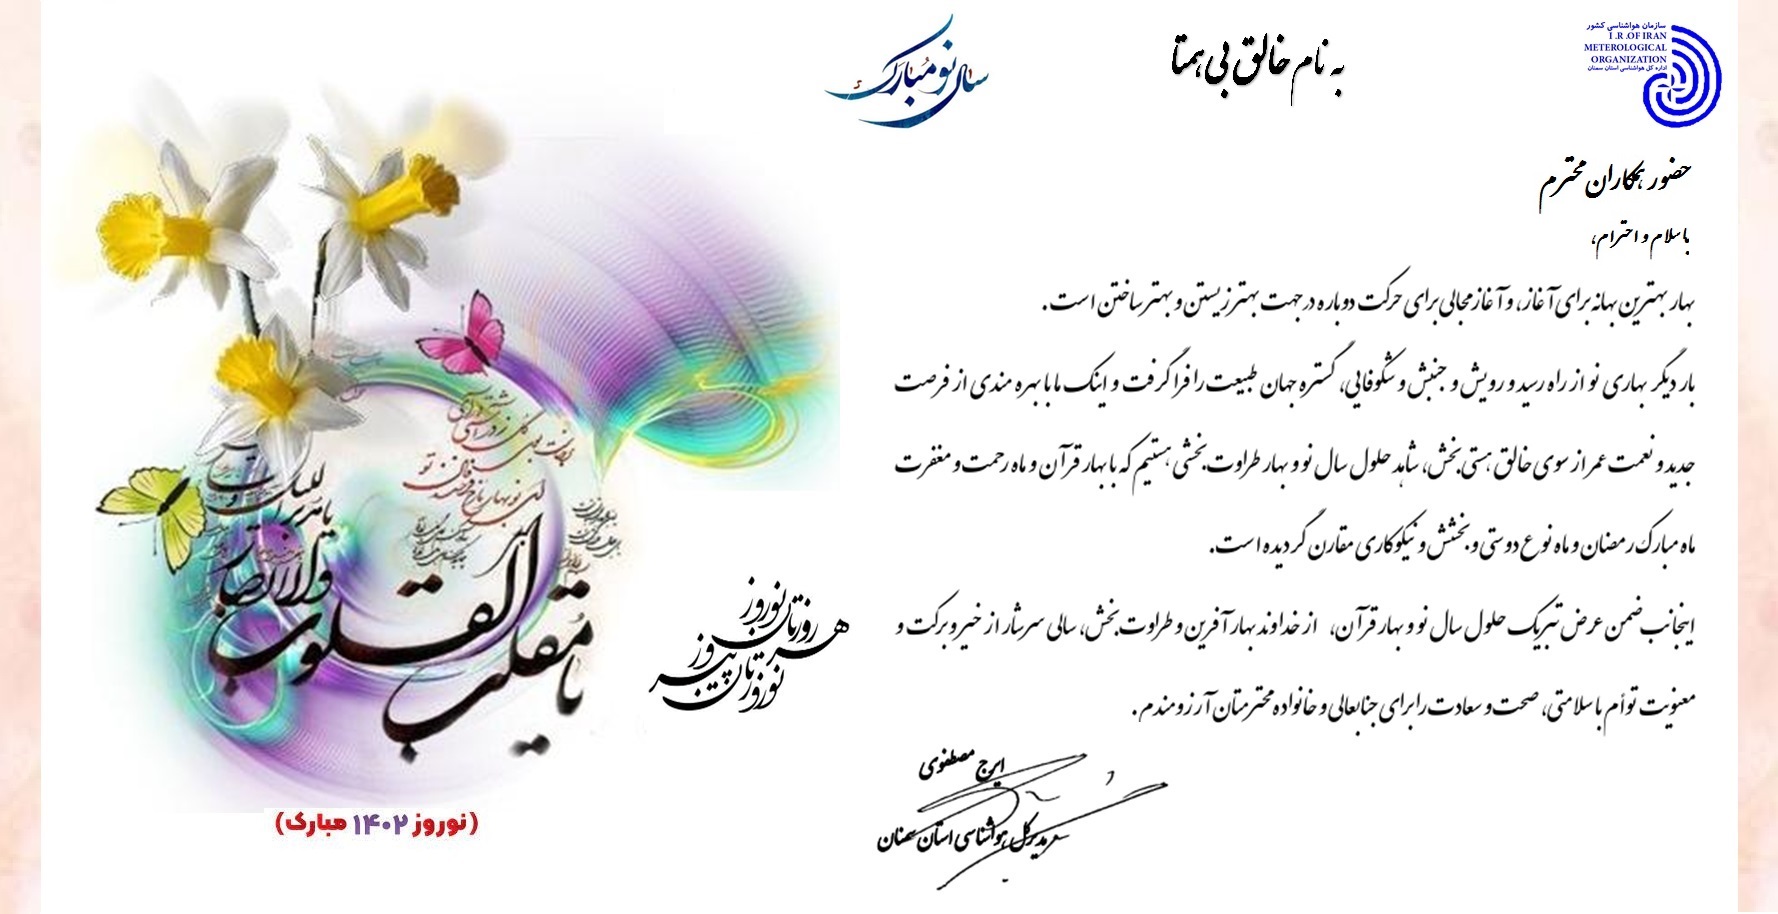 سازمان هواشناسی کشور
I.R.OF IRAN
METEROLOGICAL
ORGANIZATION
اداره کل هواشناسی استان سمنان
به نام خالق بی همتا
سال نو مبارک
حضور همکاران محترم
با سلام و احترام،
بهار بهترین بهانه برای آغاز، و آغاز مجالی برای حرکت دوباره در جهت بهتر زیستن و بهتر ساختن است.
بار دیگر بهاری نو از راه رسید و رویش و جنبش و شکوفایی، گستره جهان طبیعت را فرا گرفت و اینک ما با بهره مندی از فرصت
جدید و نعمت عمر از سوی خالق هستی بخش، شاهد حلول سال نو و بهار طراوت بخشی هستیم که با بهار قرآن و ماه رحمت و مغفرت
ماه مبارک رمضان و ماه نوع دوستی و بخشش و نیکوکاری مقارن گردیده است.
اینجانب ضمن عرض تبریک حلول سال نو و بهار قرآن، از خداوند بهار آفرین و طراوت بخش، سالی سرشار از خیر و برکت و
معنویت توأم با سلامتی، صحت و سعادت را برای جنابعالی و خانواده محترمتان آرزومندم.
ایرج مصطفوی
مدیرکل هواشناسی استان سمنان
هر روزتان نوروز
نوروزتان پیروز
یا مقلب القلوب
والابصار
یا مدبر اللیل
(نوروز ۱۴۰۲ مبارک)